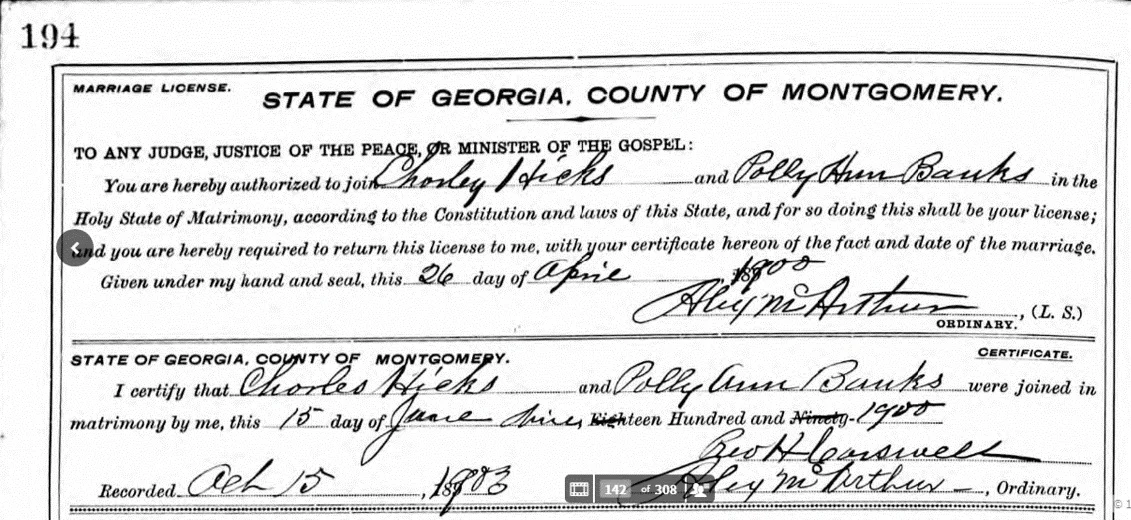 194
MARRIAGE LICENSE.
STATE OF GEORGIA, COUNTY OF MONTGOMERY.
TO ANY JUDGE, JUSTICE OF THE PEACE, OR MINISTER OF THE GOSPEL:
You are hereby authorized to join Charley Hicks and Polly Ann Banks in the
Holy State of Matrimony, according to the Constitution and laws of this State, and for so doing this shall be your license;
and you are hereby required to return this license to me, with your certificate hereon of the fact and date of the marriage.
Given under my hand and seal, this 26 day of April 1900
Alex McArthur, (L. S.)
ORDINARY.
STATE OF GEORGIA, COUNTY OF MONTGOMERY. CERTIFICATE.
I certify that Charles Hicks and Polly Ann Banks were joined in
matrimony by me, this 15 day of June Eighteen Hundred and Ninety-1900
Geo H Carswell
Recorded Oct 15, 1903 Alex McArthur, Ordinary.
142 of 308
© 1